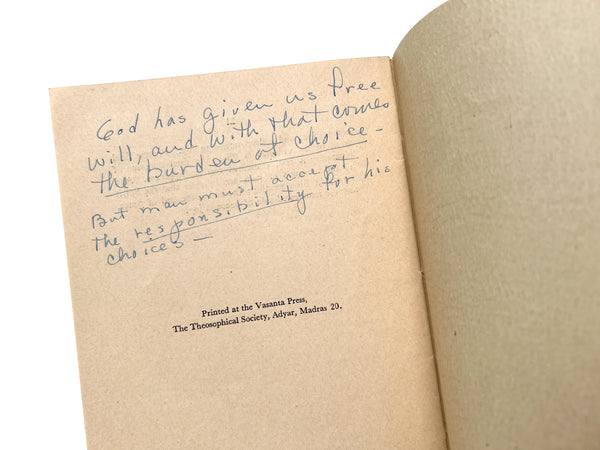 God has given us free
will, and with that comes
the burden of choice -
But man must accept
the responsibility for his
choices -
Printed at the Vasanta Press,
The Theosophical Society, Adyar, Madras 20.